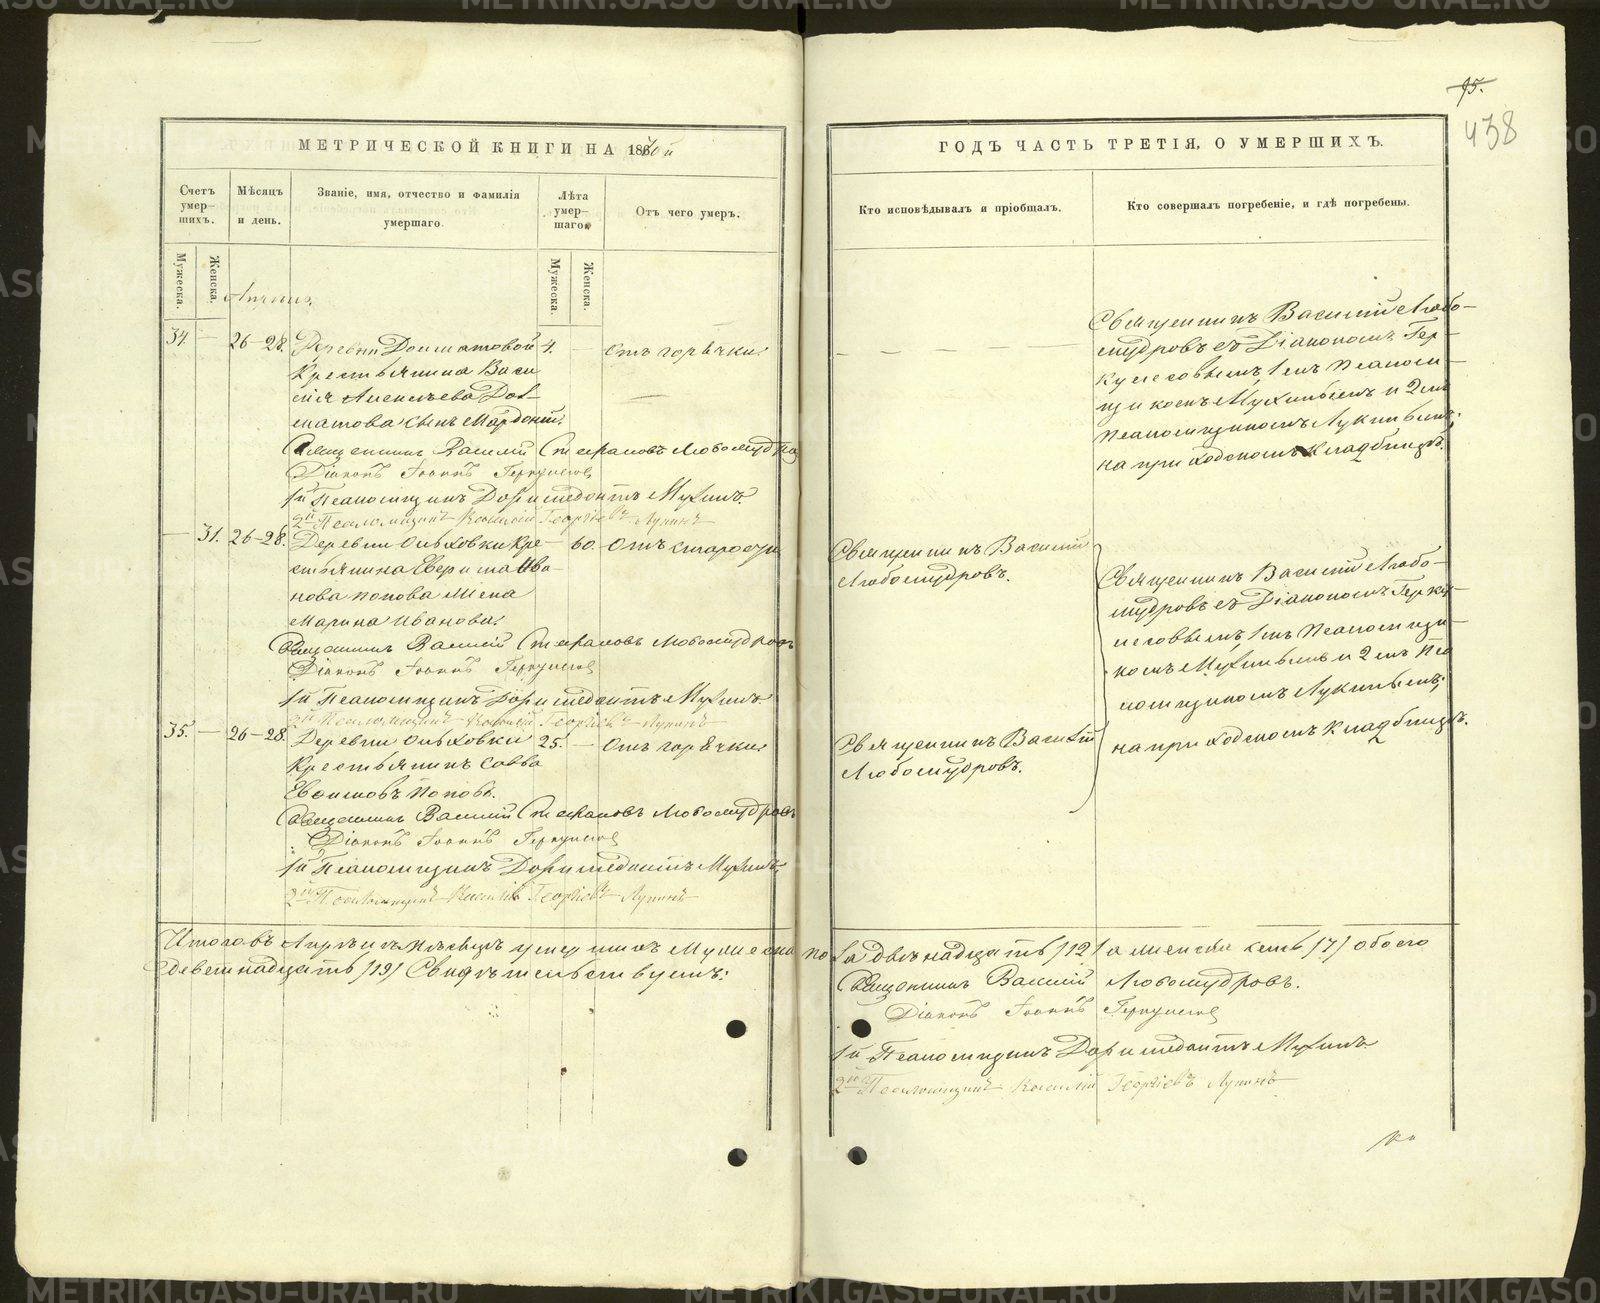 95.
438
МЕТРИЧЕСКОЙ КНИГИ НА 1870й
ГОДЪ ЧАСТЬ ТРЕТІЯ, О УМЕРШИХЪ.
Счетъ умер-шихъ.
Мѣсяцъ и день.
Званіе, имя, отчество и фамилія умершаго.
Лѣта умер-шаго.
Отъ чего умеръ.
Кто исповѣдывалъ и пріобщалъ.
Кто совершалъ погребеніе, и гдѣ погребены.
Мужеска.
Женска.
Мужеска.
Женска.
34 — 26–28. Деревни Долматовой 4. — отъ горячки
Крестьянина Васи
лія
Долматова сынъ Мардоній.
Священникъ Василій Стефановъ Любомудровъ
Діаконъ Іоаннъ Геркулесов
1й Псаломщикъ Доримедонтъ Мухинъ
2й Псаломщикъ Василій Георгіевъ Лукинъ
Священникъ Василій Любо-
мудровъ съ Діакономъ Гер-
кулесовымъ, 1мъ Псалом-
щикомъ Мухинымъ и 2мъ
Псаломщикомъ Лукинымъ;
на приходскомъ кладбищѣ.
— 31. 26–28. Деревни Ольховки Кре- — 60. Отъ старости
стьянина Ива-
нова Попова жена
Марина Иванова
Священникъ Василій Стефановъ Любомудровъ
Діаконъ Іоаннъ Геркулесов
1й Псаломщикъ Доримедонтъ Мухинъ
2й Псаломщикъ Василій Георгіевъ Лукинъ
Священникъ Василій
Любомудровъ.
35. — 26–28. Деревни Ольховки 25. — Отъ горячки
Крестьянинъ Савва
Поповъ.
Священникъ Василій Стефановъ Любомудровъ
Діаконъ Іоаннъ Геркулесов
1й Псаломщикъ Доримедонтъ Мухинъ
2й Псаломщикъ Василій Георгіевъ Лукинъ
Священникъ Василій
Любомудровъ.
Священникъ Василій Любо-
мудровъ съ Діакономъ Герку-
лесовымъ, 1мъ Псаломщи-
комъ Мухинымъ и 2мъ Пса
ломщикомъ Лукинымъ;
на приходскомъ кладбищѣ.
Итого въ Апрѣлѣ мѣсяцѣ умершихъ Мужеска пола двѣнадцать /12/ а женска семь /7/ обоего
девятнадцать /19/ Свидѣтельствуемъ:
Священникъ Василій Любомудровъ.
Діаконъ Іоаннъ Геркулесов
1й Псаломщикъ Доримедонтъ Мухинъ
2й Псаломщикъ Василій Георгіевъ Лукинъ
METRIKI.GASO-URAL.RU